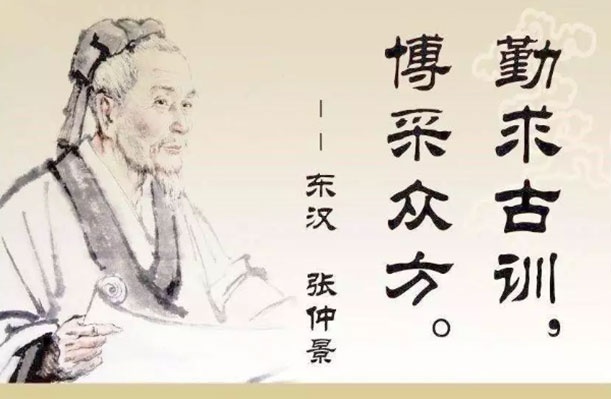 勤求古训，
博采众方。
——东汉 张仲景